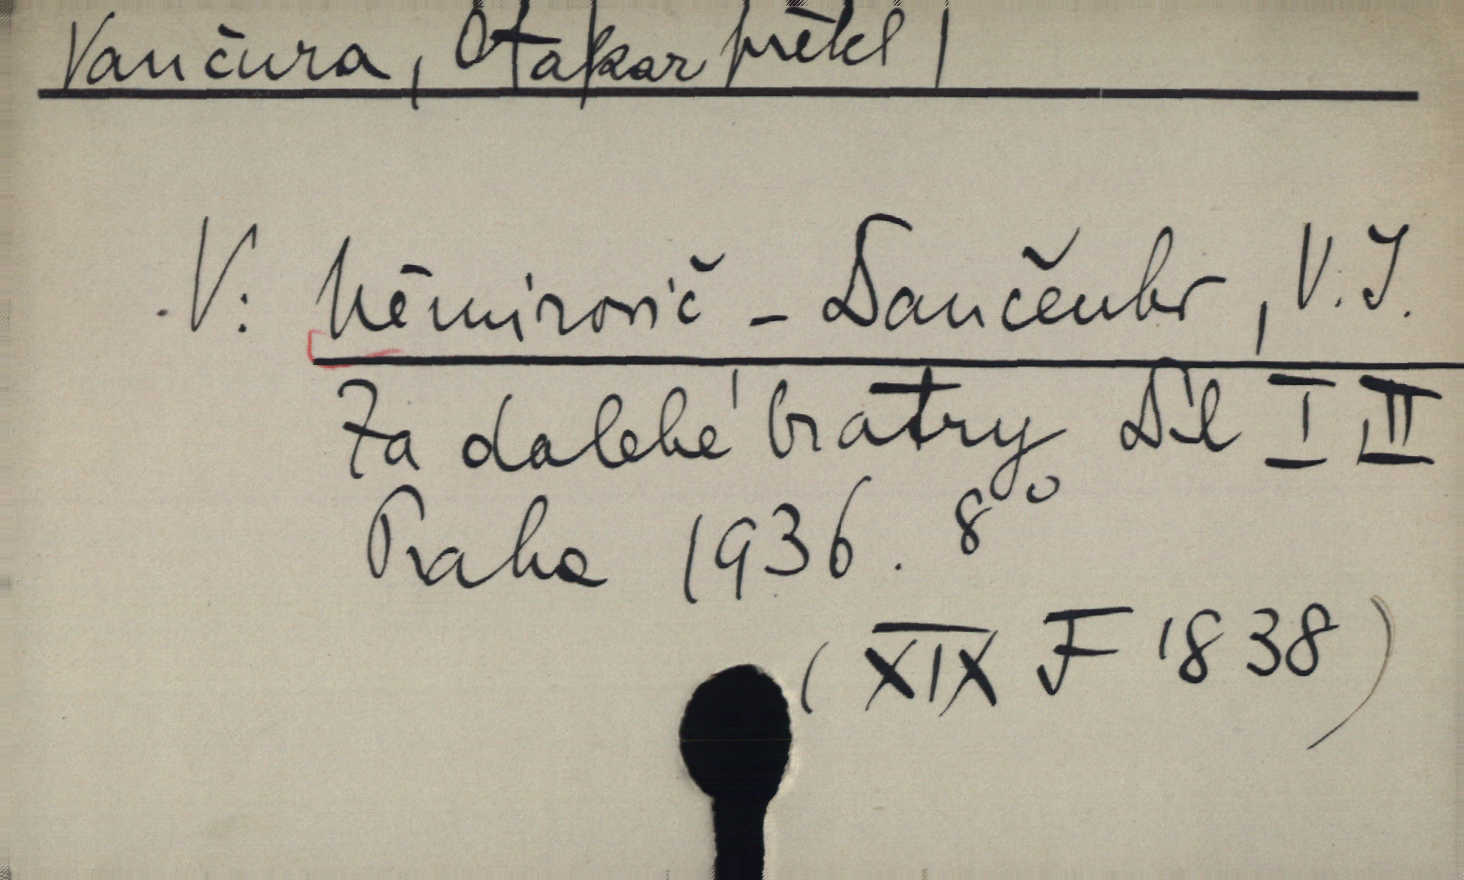 Vančura, Otakar překl |
V: Němirovič - Dančenko, V. I.
Za daleké bratry Díl I, II
Praha 1936. 8°
(XIX F 1838)